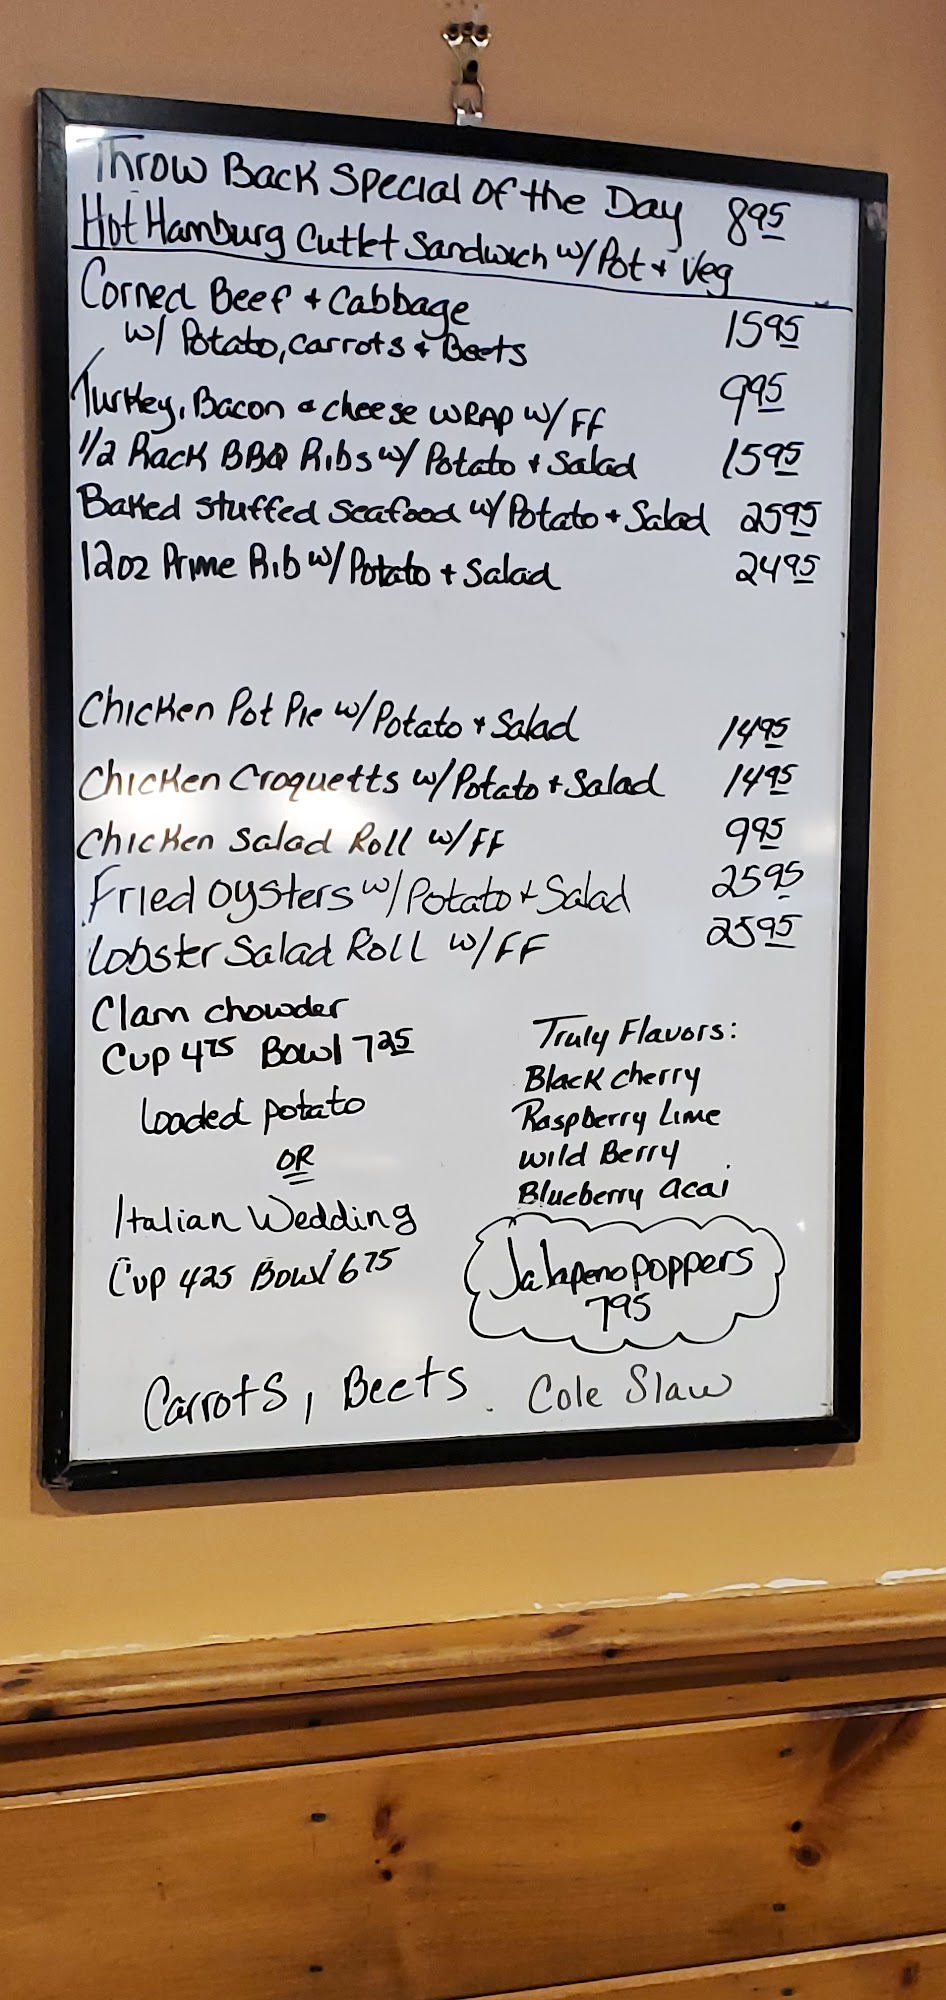 Throw Back Special of the Day 895
Hot Hamburg Cutlet Sandwich w/ Pot + Veg
Corned Beef + Cabbage 1595
w/ Potato, Carrots + Beets
Turkey, Bacon & cheese WRAP w/ FF 995
1/2 Rack BBQ Ribs w/ Potato + Salad 1595
Baked Stuffed Seafood w/ Potato + Salad 2595
12oz Prime Rib w/ Potato + Salad 2495
Chicken Pot Pie w/ Potato + Salad 1495
Chicken Croquetts w/ Potato + Salad 1495
Chicken Salad Roll w/ FF 995
Fried Oysters w/ Potato + Salad 2595
Lobster Salad Roll w/ FF 2595
Clam chowder
Cup 475 Bowl 725
Loaded potato
OR
Italian Wedding
Cup 425 Bowl 675
Truly Flavors:
Black cherry
Raspberry Lime
Wild Berry
Blueberry acai
Jalapeno poppers
795
Carrots, Beets. Cole Slaw